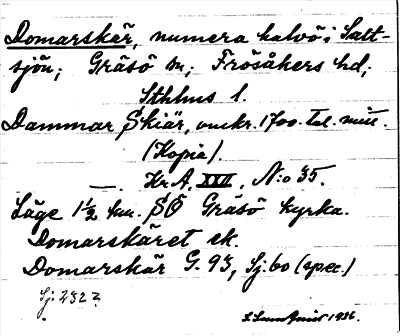 Domarskär, numera halvö i Salt-
sjön; Gräsö sn; Frösåkers hd;
Sthlms l.
Dammar Skiär, omkr. 1700-tal. mitt
(Kopia).
—. Kr.A. XVII, N:o 35.
Läge 1½ km. SÖ Gräsö kyrka.
Domarskäret ek.
Domarskär G. 93, Sj. 60 (spec.)
Sj: 232 2
1936.